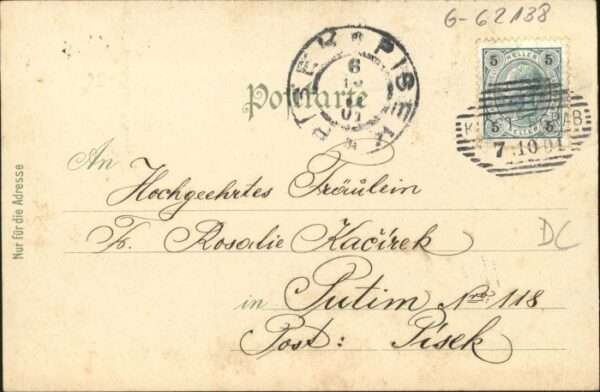 G-62138
PISEK PISEK
6
10
01
5 HELLER 5
5 HELLER 5
7.10 01
Postkarte
An
Hochgeehrtes Fräulein
Fr. Rosalie Kačírek
DC
in Putim Nro. 118
Post: Písek
Nur für die Adresse